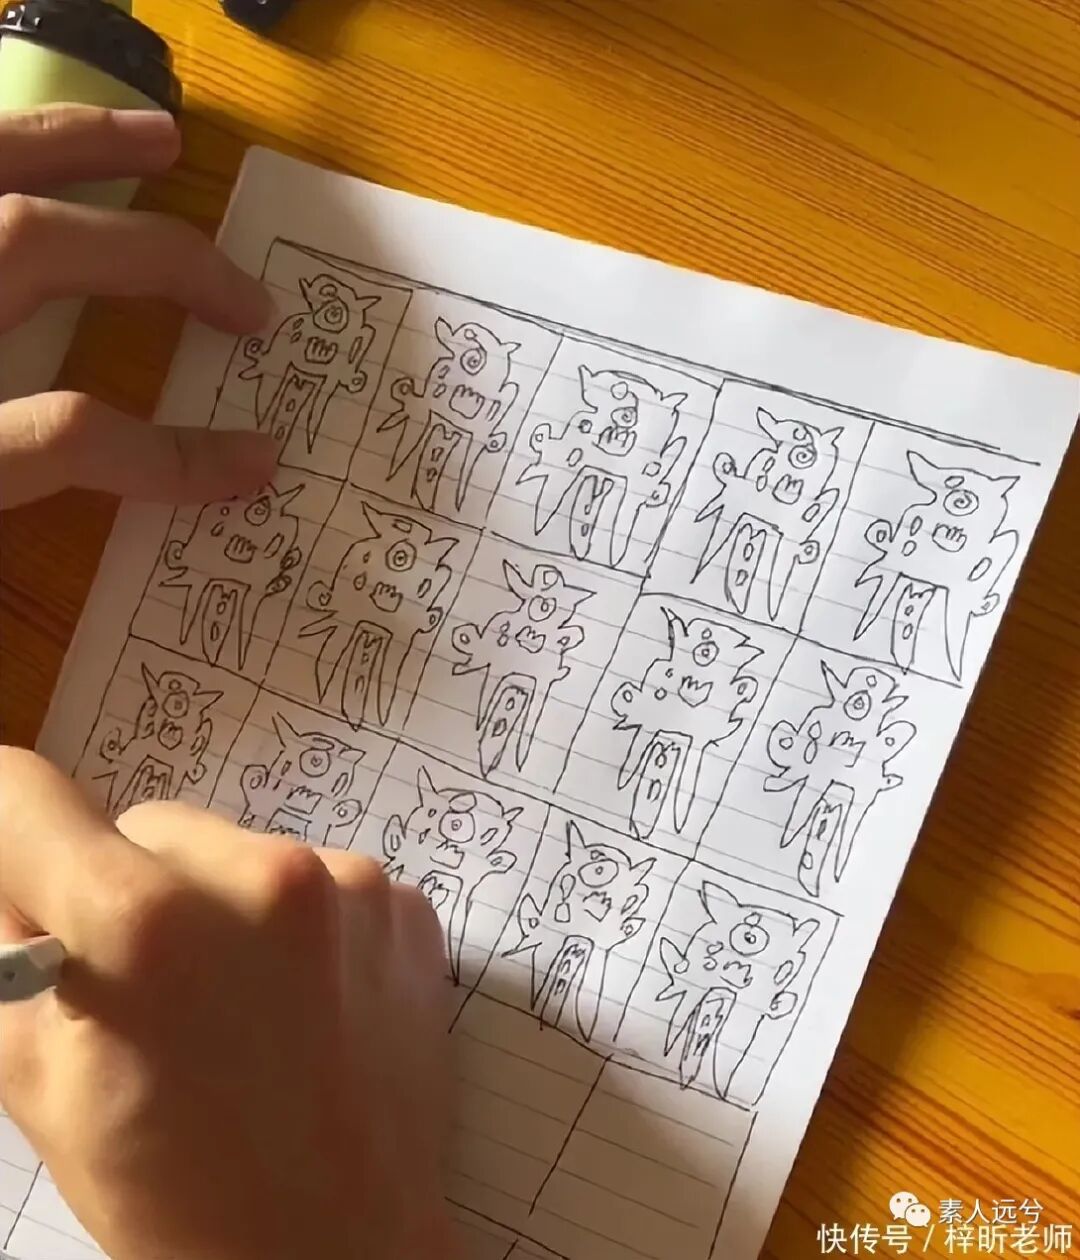 素人远兮
快传号/梓昕老师